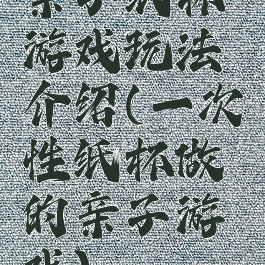 亲子纸杯
游戏玩法
介绍(一次
性纸杯做
的亲子游
戏)